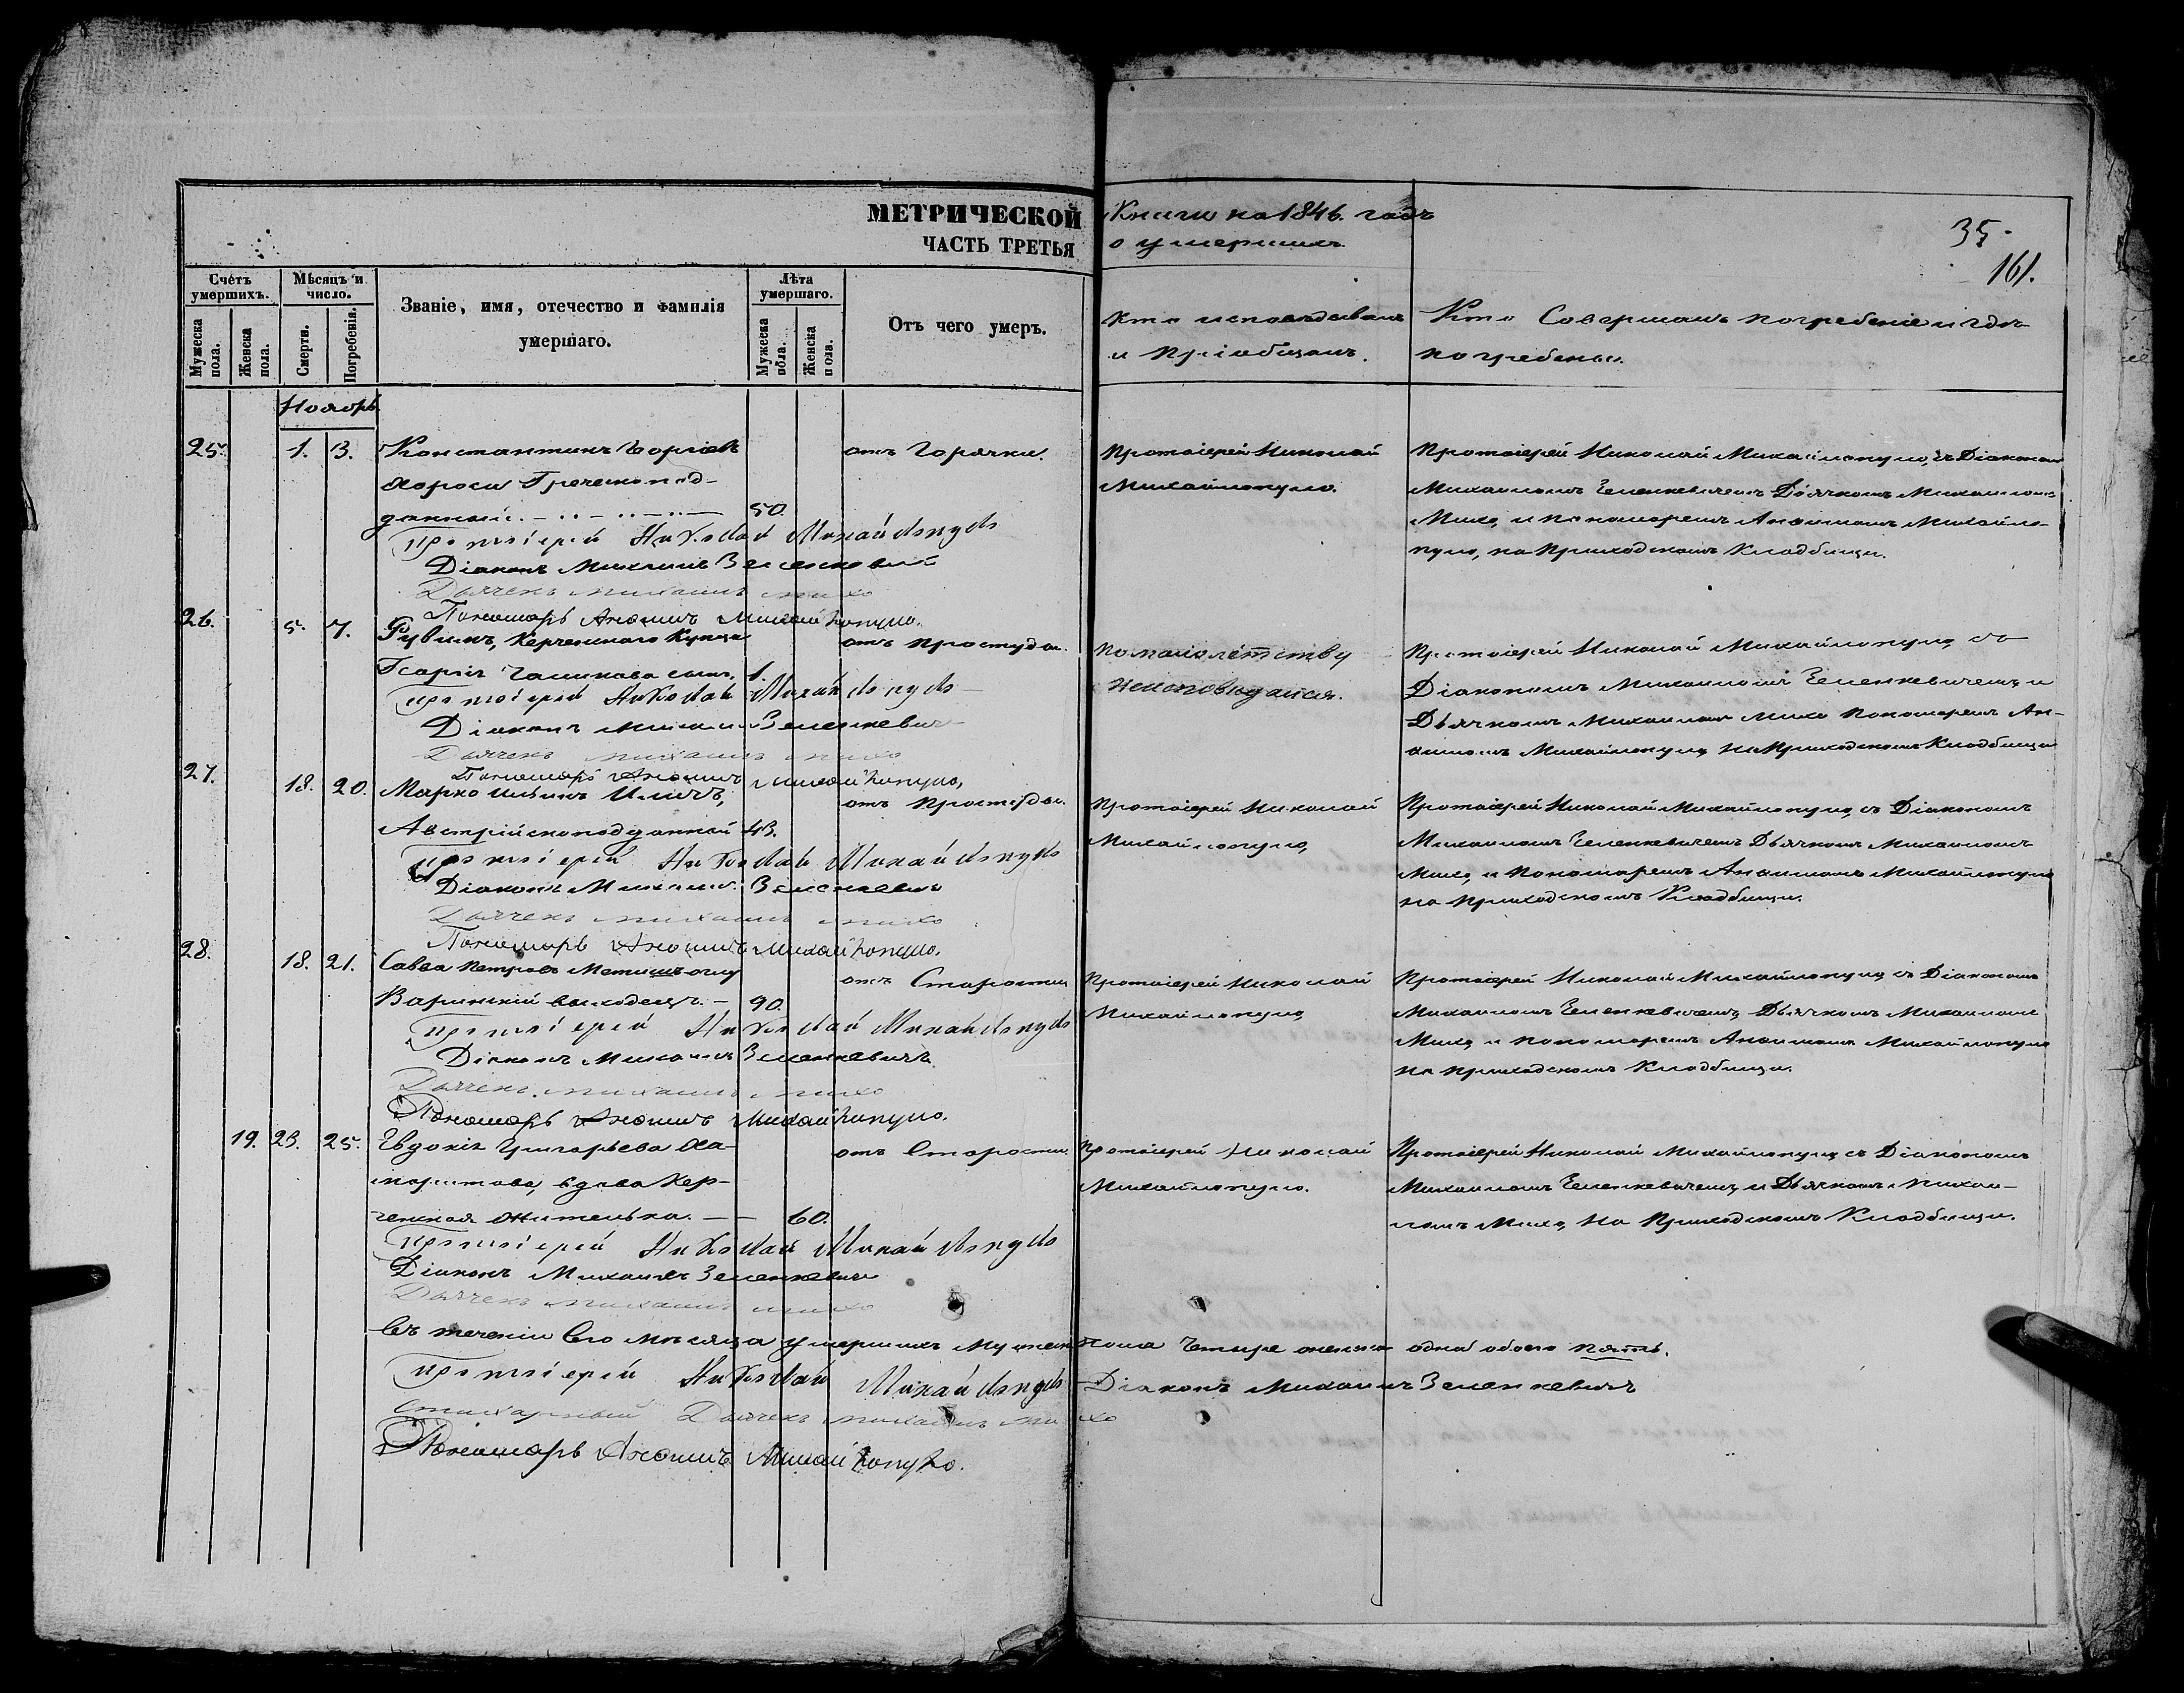 МЕТРИЧЕСКОЙ Книги на 1846. годъ
ЧАСТЬ ТРЕТЬЯ о умершихъ
35.
161.
Счетъ умершихъ.
Мужеска пола.
Женска пола.
Мѣсяцъ и число.
Смерти.
Погребенія.
Званіе, имя, отечество и фамилія
умершаго.
Лѣта умершаго.
Мужеска пола.
Женска пола.
Отъ чего умеръ.
Кто исповѣдывалъ
и пріобщалъ.
Кто Совершалъ погребеніе и гдѣ
погребены.
Ноябрь
25. 1. 3. Константинъ Георгіевъ
Греческоподданный 50.
отъ Горячки.
Протоіерей Николай
Михайлопуло.
Протоіерей Николай Михайлопуло, съ Діакономъ
Михаиломъ Зеленкевичемъ Дьячкомъ Михаиломъ
Михо, и пономаремъ Михайло-
пуло, на Приходскомъ Кладбищи.
Протоіерей Николай Михайлопуло
Діаконъ Михаилъ
Дьячекъ Михаилъ Михо
Пономарь Михайлопуло.
26. 5. 7. Рувимъ, Керченскаго Купца
сынъ, 1.
отъ простуды.
По малолѣтству
неисповѣдался.
Протоіерей Николай Михайлопуло, съ
Діакономъ Михаиломъ Зеленкевичемъ и
Дьячкомъ Михаиломъ Михо Пономаремъ
Михайлопуло, на Приходскомъ Кладбищи
Протоіерей Николай Михайлопуло
Діаконъ Михаилъ Зеленкевичъ
Дьячекъ Михаилъ Михо
Пономарь Михайлопуло,
27. 18. 20. Марко Ильинъ
Австрійскоподданный 43.
отъ Простуды.
Протоіерей Николай
Михайлопуло,
Протоіерей Николай Михайлопуло, съ Діакономъ
Михаиломъ Зеленкевичемъ Дьячкомъ Михаиломъ
Михо, и Пономаремъ Михайлопуло
на приходскомъ Кладбищи.
Протоіерей Николай Михайлопуло
Діаконъ Михаилъ Зеленкевичъ
Дьячекъ Михаилъ Михо
Пономарь Михайлопуло.
28. 18. 21. Савва Петровъ
выходецъ. – 90.
отъ Старости
Протоіерей Николай
Михайлопуло,
Протоіерей Николай Михайлопуло, съ Діакономъ
Михаиломъ Зеленкевичемъ, Дьячкомъ Михаиломъ
Михо, и пономаремъ Михайлопуло
на приходскомъ Кладбищи.
Протоіерей Николай Михайлопуло
Діаконъ Михаилъ Зеленкевичъ
Дьячекъ Михаилъ Михо
Пономарь Михайлопуло.
19. 23. 25. Евдокія Григорьева
вдова Кер-
ченская жителька. — 60.
отъ Старости.
Протоіерей Николай
Михайлопуло.
Протоіерей Николай Михайлопуло, съ Діакономъ
Михаиломъ Зеленкевичемъ, и Дьячкомъ Михаи-
ломъ Михо, на Приходскомъ Кладбищи.
Протоіерей Николай Михайлопуло
Діаконъ Михаилъ Зеленкевичъ
Дьячекъ Михаилъ Михо
Въ теченіи сего мѣсяца умершихъ мужеска пола четыре женска одна обоего пять.
Протоіерей Николай Михайлопуло Діаконъ Михаилъ Зеленкевичъ
Стихарный Дьячекъ Михаилъ Михо
Пономарь Михайлопуло.